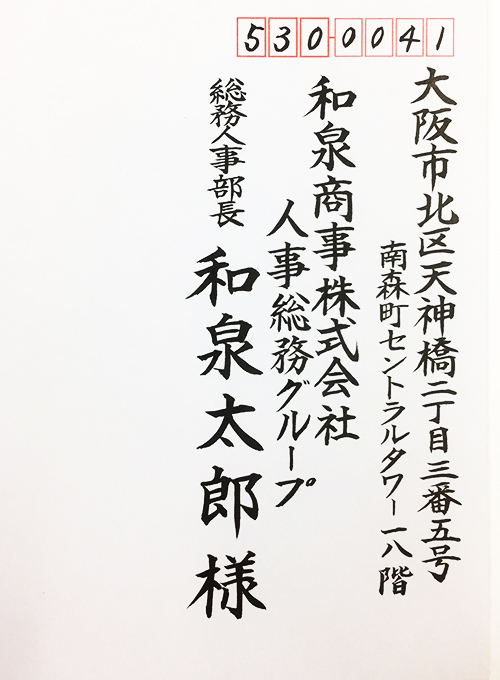 530-0041
大阪市北区天神橋二丁目三番五号
南森町セントラルタワー一八階
和泉商事株式会社
人事総務グループ
総務人事部長
和泉太郎様